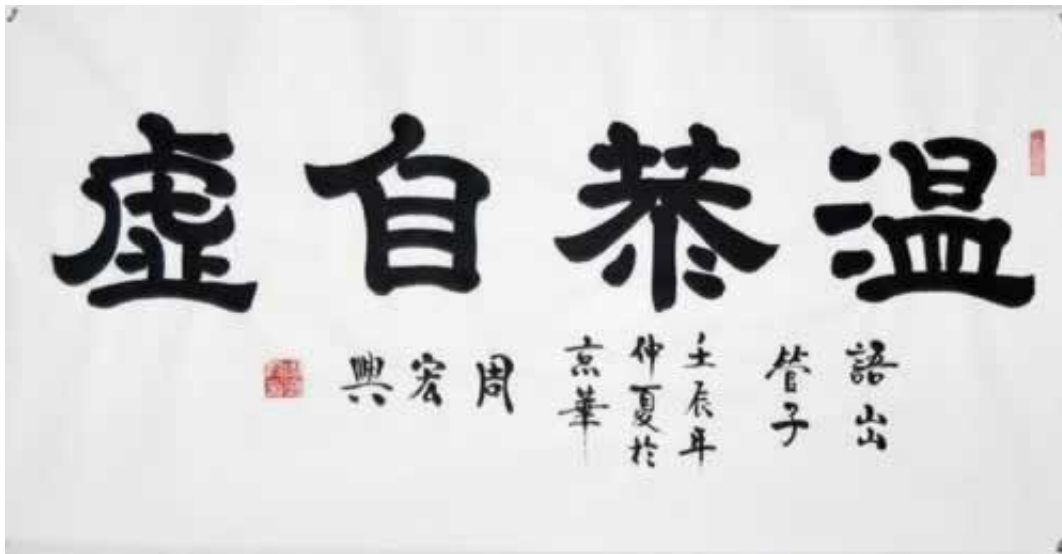 温恭自虛
語出
管子
壬辰年
仲夏於
京華
周
宏
興